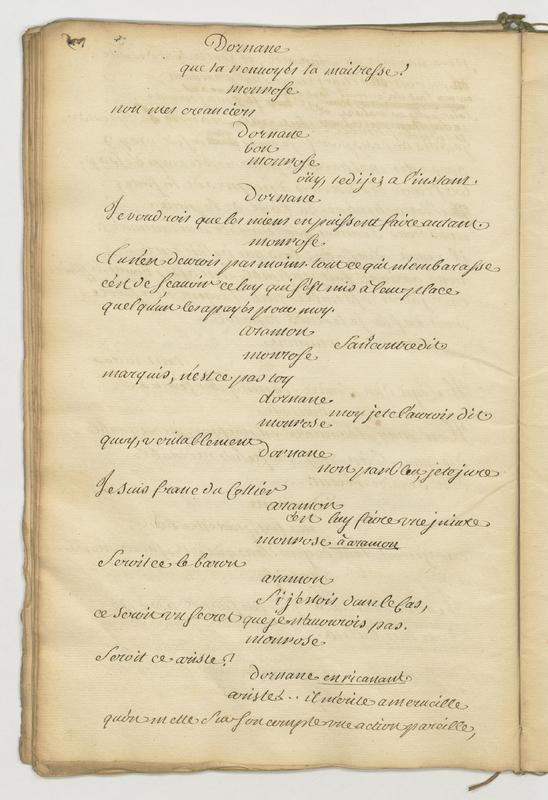 Dornane
que ta renvoyés ta maitresse?
monrose
non mes creanciers
Dornane
bon
monrose
oüy, tedije, a l'instant.
Dornane
Je voudrois que les miens en puissent faire autant
monrose
tu n'en devrois pas moins. tout ce qui m'embarasse
c'est de sçauoir celuy qui s'est mis à leur place
quelqu'un les apayés pour moy.
aramon
Sans contredit
monrose
marquis, n'est ce pas toy
dornane
moy je te l'aurois dit
monrose
quoy, veritablement
Dornane
non parbleu, je te jure
Je suis franc du Collier
aramon
c'est luy faire une injure
monrose à aramon
Seroit ce le baron
aramon
Si j'étois dans le Cas,
ce seroit un Secret que je n'auouerois pas.
monrose
Seroit ce ariste?
Dornane en ricanant
ariste!.. il mérite a merueille
qu'on mette Sur Son compte une action pareille,